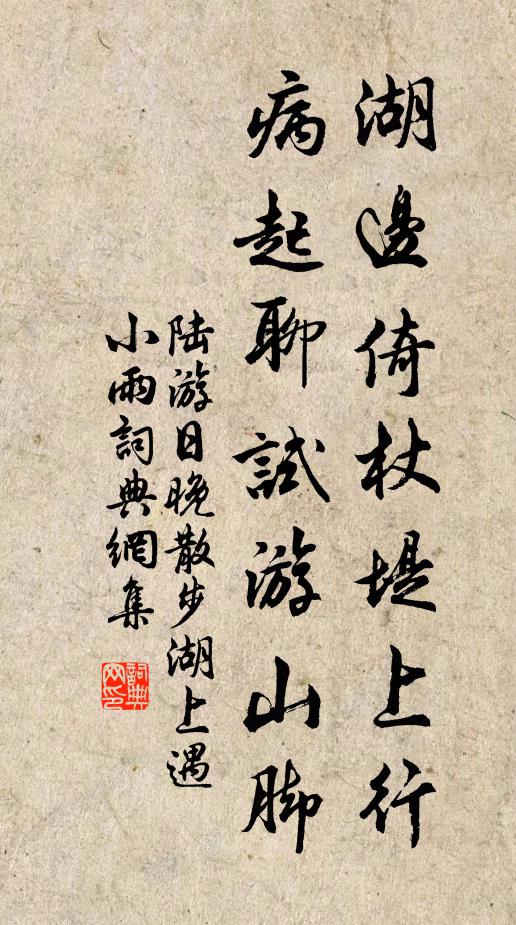 湖邊倚杖堤上行
病起聊試游山脚
陆游日晚散步湖上遇
小雨詞典網集
詞典网印